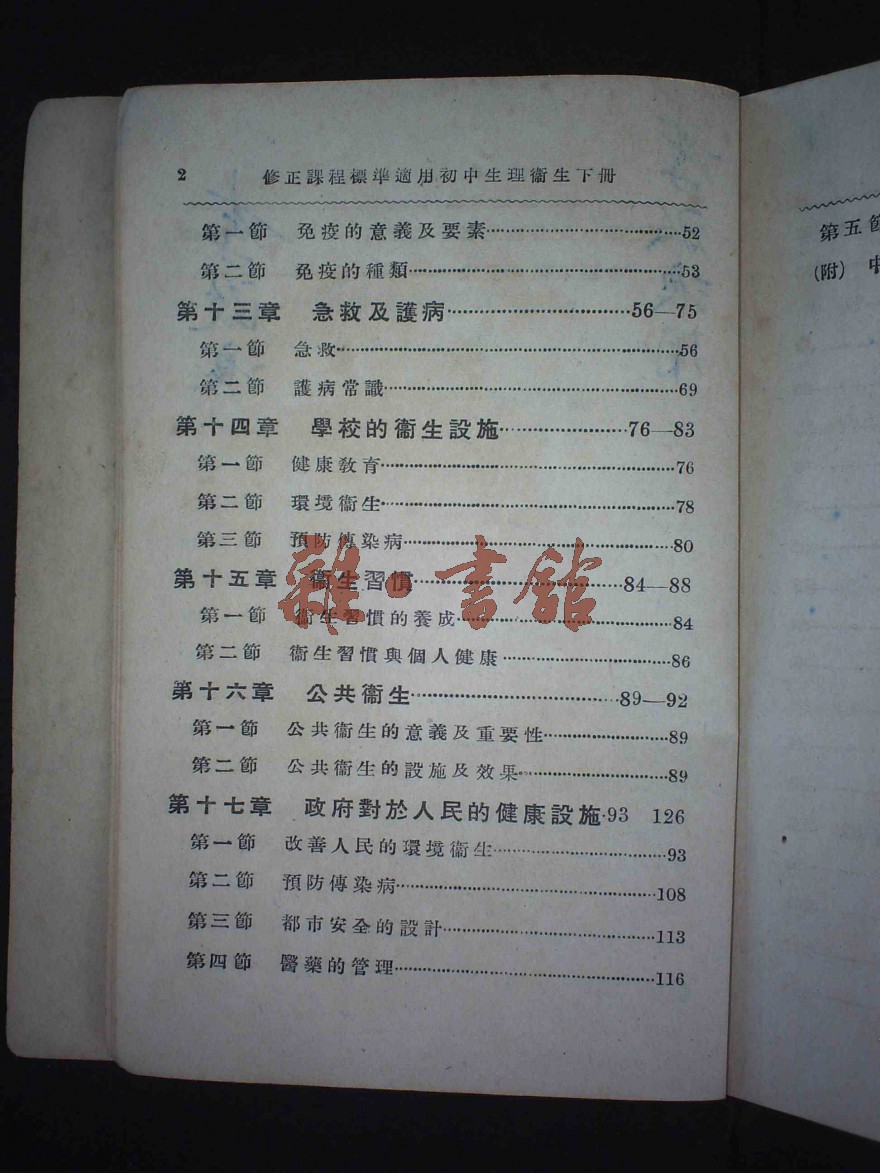 2 修正課程標準適用初中生理衞生下冊
第一節 免疫的意義及要素……52
第二節 免疫的種類……53
第十三章 急救及護病……56—75
第一節 急救……56
第二節 護病常識……69
第十四章 學校的衞生設施……76—83
第一節 健康敎育……76
第二節 環境衞生……78
第三節 預防傳染病……80
第十五章 衞生習慣……84—88
第一節 衞生習慣的養成……84
第二節 衞生習慣與個人健康……86
第十六章 公共衞生……89—92
第一節 公共衞生的意義及重要性……89
第二節 公共衞生的設施及效果……89
第十七章 政府對於人民的健康設施·93 126
第一節 改善人民的環境衞生……93
第二節 預防傳染病……108
第三節 都市安全的設計……113
第四節 醫藥的管理……116
雜·書館
第五節
(附) 中